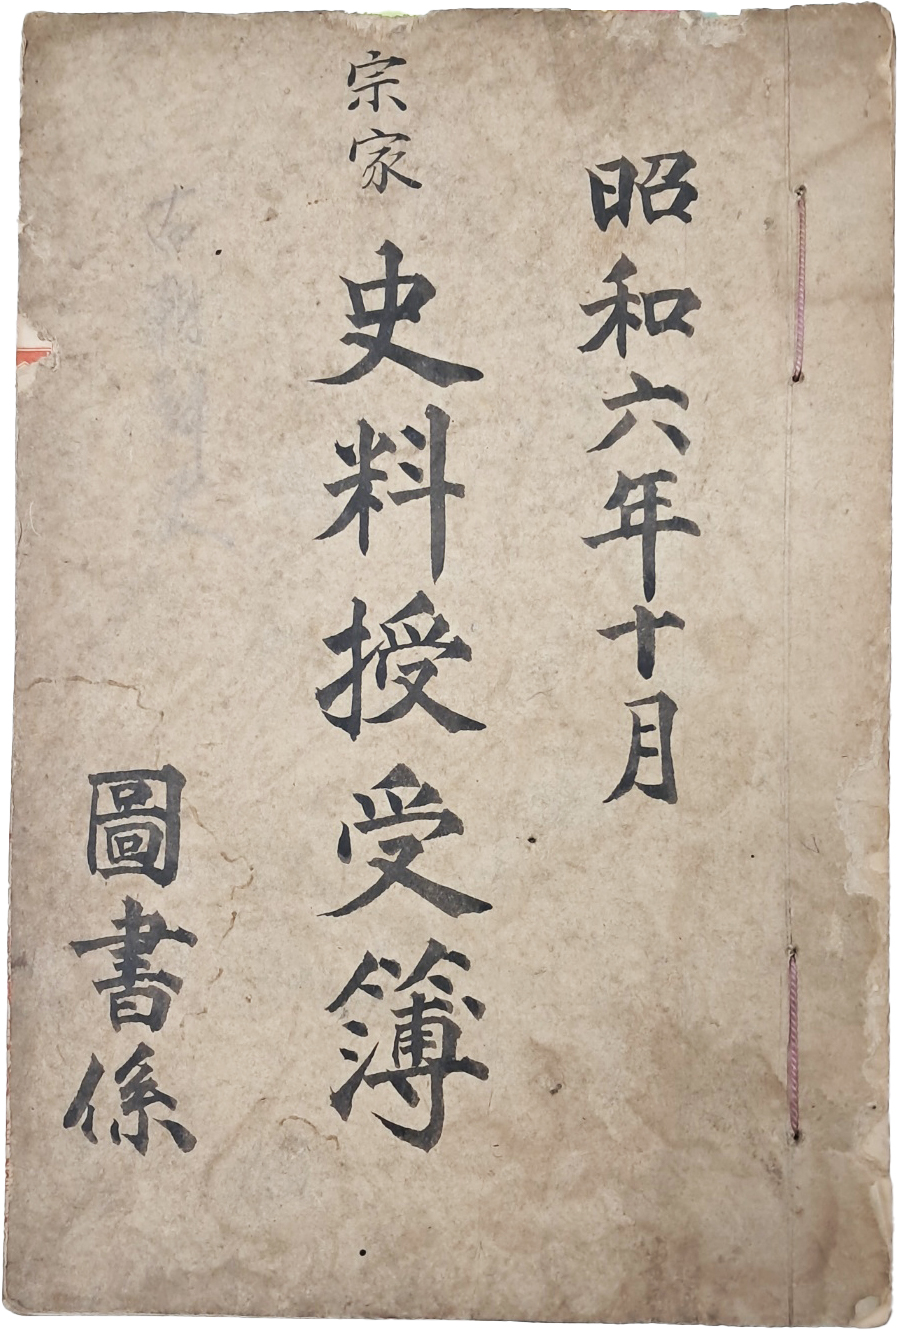 昭和六年十月
宗家
史料授受簿
圖書係